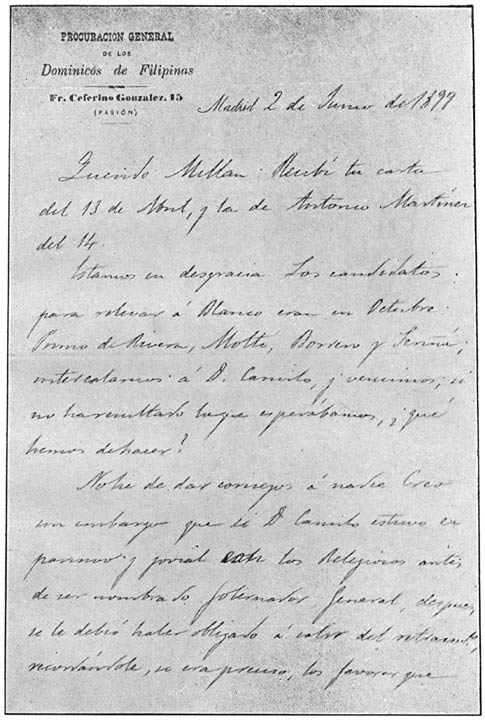 PROCURACION GENERAL
DE LOS
Dominicos de Filipinas
Fr. Ceferino Gonzalez, 15
(PASIÓN)
Madrid 2 de Junio de 1897
Querido Millan: Recibí tu carta
del 13 de Abril, y la de Antonio Martinez
del 14.
Estamos en desgracia Los candidatos
para relevar á Blanco eran en Octubre:
Primo de Rivera, Moltó, Borrero y
intercalamos á D. Camilo, y vencimos; si
no ha resultado lo que esperábamos, ¿qué
hemos de hacer?
No he de dar consejos á nadie Creo
sin embargo que si D Camilo estuvo
y jovial con los Religiosos antes
de ser nombrado Gobernador General, después
se le debió haber obligado á salir del retraimto,
recordándole, si era preciso, los favores que